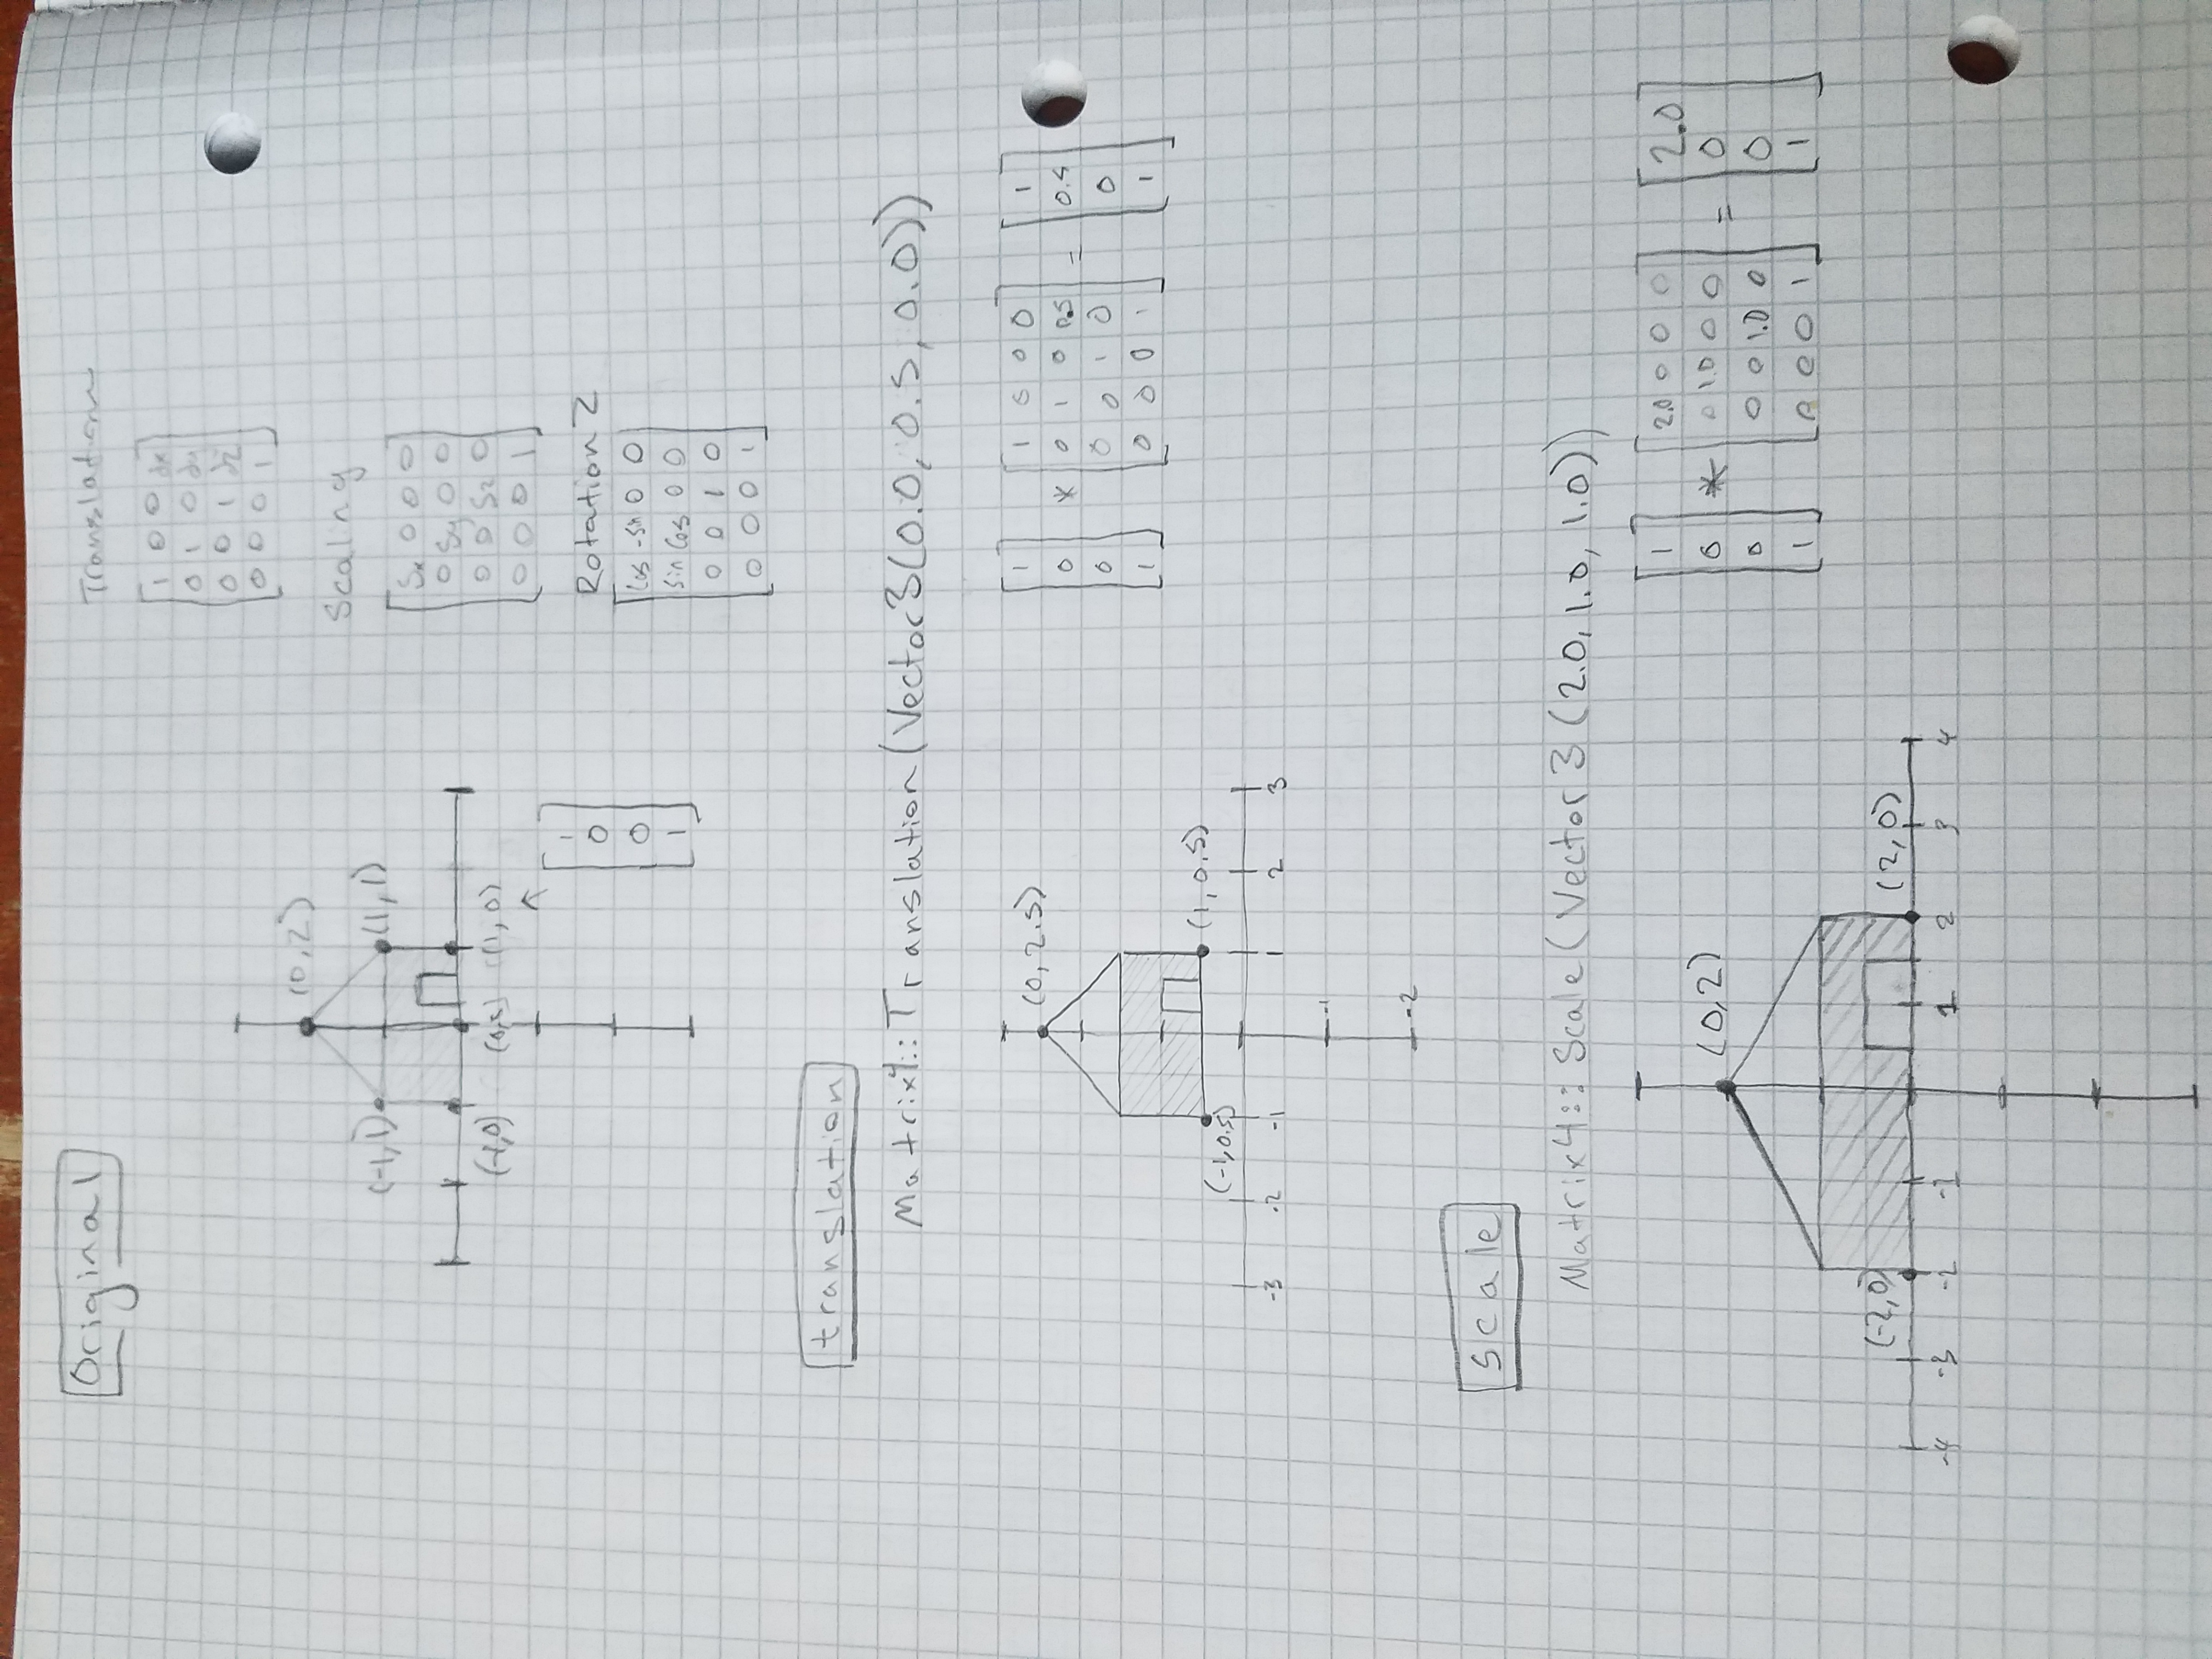 Original
(0,2)
(-1,1)
(1,1)
(-1,0)
(1,0)
1
0
0
1
Translation
1 0 0 dx
0 1 0 dy
0 0 1 dz
0 0 0 1
Scaling
Sx 0 0 0
0 Sy 0 0
0 0 Sz 0
0 0 0 1
Rotation Z
Cos -sin 0 0
sin Cos 0 0
0 0 1 0
0 0 0 1
translation
Matrix4::Translation(Vector3(0.0, 0.5, 0.0))
(0, 2.5)
(-1,0.5)
(1, 0.5)
-3 -2 -1 1 2 3
-1
-2
1 1 0 0 0 1
0 * 0 1 0 0.5 = 0.5
0 0 0 1 0 0
1 0 0 0 1 1
scale
Matrix4::Scale(Vector3(2.0, 1.0, 1.0))
(0,2)
(-2,0)
(2,0)
-4 -3 -2 -1 1 2 3 4
1 2.0 0 0 0 2.0
0 * 0 1.0 0 0 = 0
0 0 0 1.0 0 0
1 0 0 0 1 1